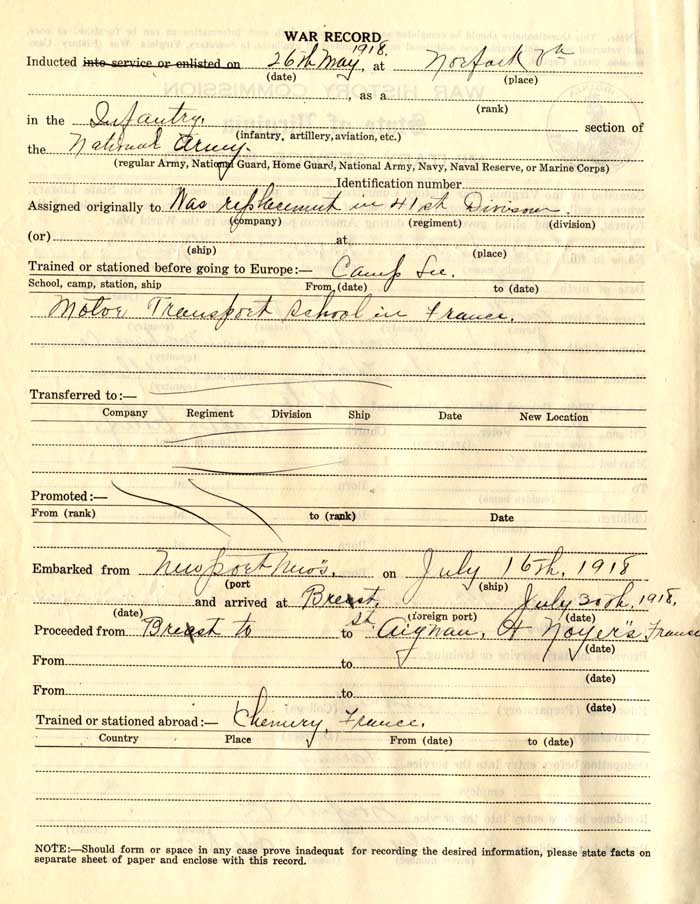 WAR RECORD
Inducted into service or enlisted on 26th May 1918, at Norfolk Va
(date) (place)
, as a
(rank)
in the Infantry. section of
(infantry, artillery, aviation, etc.)
the National Army.
(regular Army, National Guard, Home Guard, National Army, Navy, Naval Reserve, or Marine Corps)
Identification number
Assigned originally to Was replacement in 41st Division.
(company) (regiment) (division)
(or) at
(ship) (place)
Trained or stationed before going to Europe:— Camp Lee.
School, camp, station, ship From (date) to (date)
Motor Transport School in France.
Transferred to:—
Company Regiment Division Ship Date New Location
Promoted:—
From (rank) to (rank) Date
Embarked from Newport News, on July 16th, 1918
(port (ship)
and arrived at Brest, July 30th, 1918.
(date) (foreign port) (date)
Proceeded from Brest to to St. Aignan, Noyers France
(date)
From to
(date)
From to
(date)
Trained or stationed abroad:— Chemery, France.
Country Place From (date) to (date)
NOTE:—Should form or space in any case prove inadequat for recording the desired information, please state facts on
separate sheet of paper and enclose with this record.